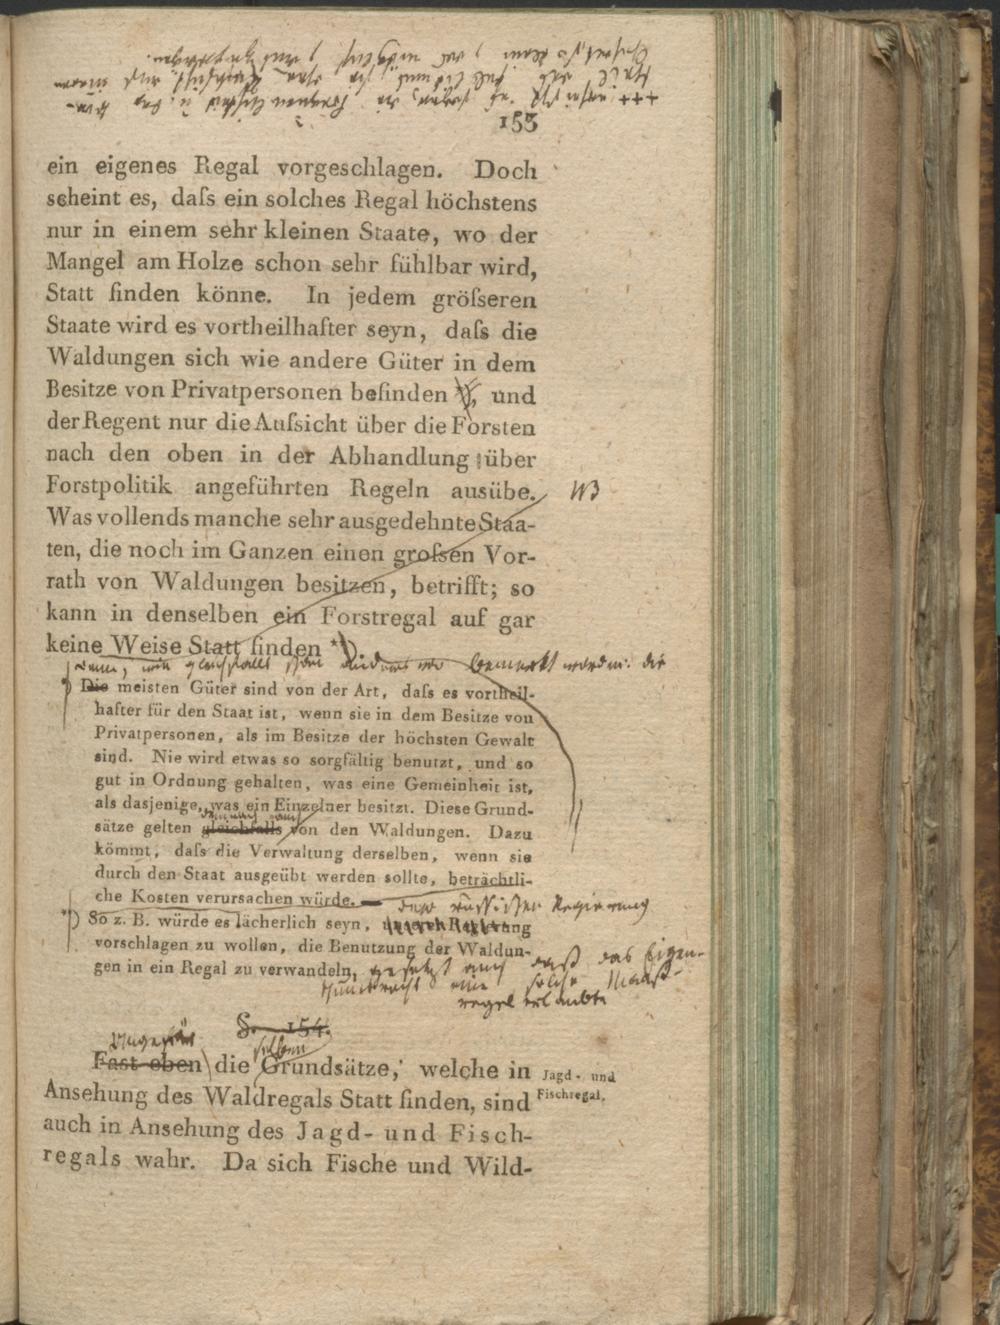 153
ein eigenes Regal vorgeschlagen. Doch
scheint es, daſs ein solches Regal höchstens
nur in einem sehr kleinen Staate, wo der
Mangel am Holze schon sehr fühlbar wird,
Statt finden könne. In jedem gröſseren
Staate wird es vortheilhafter seyn, daſs die
Waldungen sich wie andere Güter in dem
Besitze von Privatpersonen befinden *), und
der Regent nur die Aufsicht über die Forsten
nach den oben in der Abhandlung über
Forstpolitik angeführten Regeln ausübe. NB
Was vollends manche sehr ausgedehnte Staa-
ten, die noch im Ganzen einen groſsen Vor-
rath von Waldungen besitzen, betrifft; so
kann in denselben ein Forstregal auf gar
keine Weise Statt finden **)
bemerkt worden: die
*) Die meisten Güter sind von der Art, daſs es vortheil-
hafter für den Staat ist, wenn sie in dem Besitze von
Privatpersonen, als im Besitze der höchsten Gewalt
sind. Nie wird etwas so sorgfältig benutzt, und so
gut in Ordnung gehalten, was eine Gemeinheit ist,
als dasjenige, was ein Einzelner besitzt. Diese Grund-
demnach auch
sätze gelten gleichfalls von den Waldungen. Dazu
kömmt, daſs die Verwaltung derselben, wenn sie
durch den Staat ausgeübt werden sollte, beträchtli-
che Kosten verursachen würde.
der russischen Regierung
**) So z. B. würde es lächerlich seyn, unserer Regierung
vorschlagen zu wollen, die Benutzung der Waldun-
gen in ein Regal zu verwandeln, gesetzt auch daß das Eigen-
thumsrecht eine solche Maaß-
regel erlaubte
§. 154.
Ungefär
selben
Fast eben die Grundsätze, welche in
Jagd- und
Fischregal.
Ansehung des Waldregals Statt finden, sind
auch in Ansehung des Jagd- und Fisch-
regals wahr. Da sich Fische und Wild-